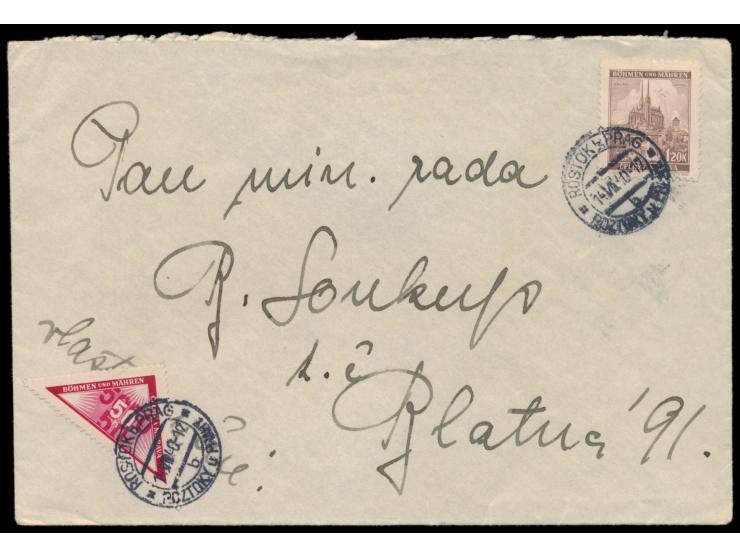 BÖHMEN UND MÄHREN
1.20K
ROSTOK b. PRAG
ROZTOKY U PRAHY
b
Pan min. rada
R. Soukup
t. č.
Blatná 91.
vlast
BÖHMEN UND MÄHREN
50
ROSTOK b. PRAG
ROZTOKY U PRAHY
b